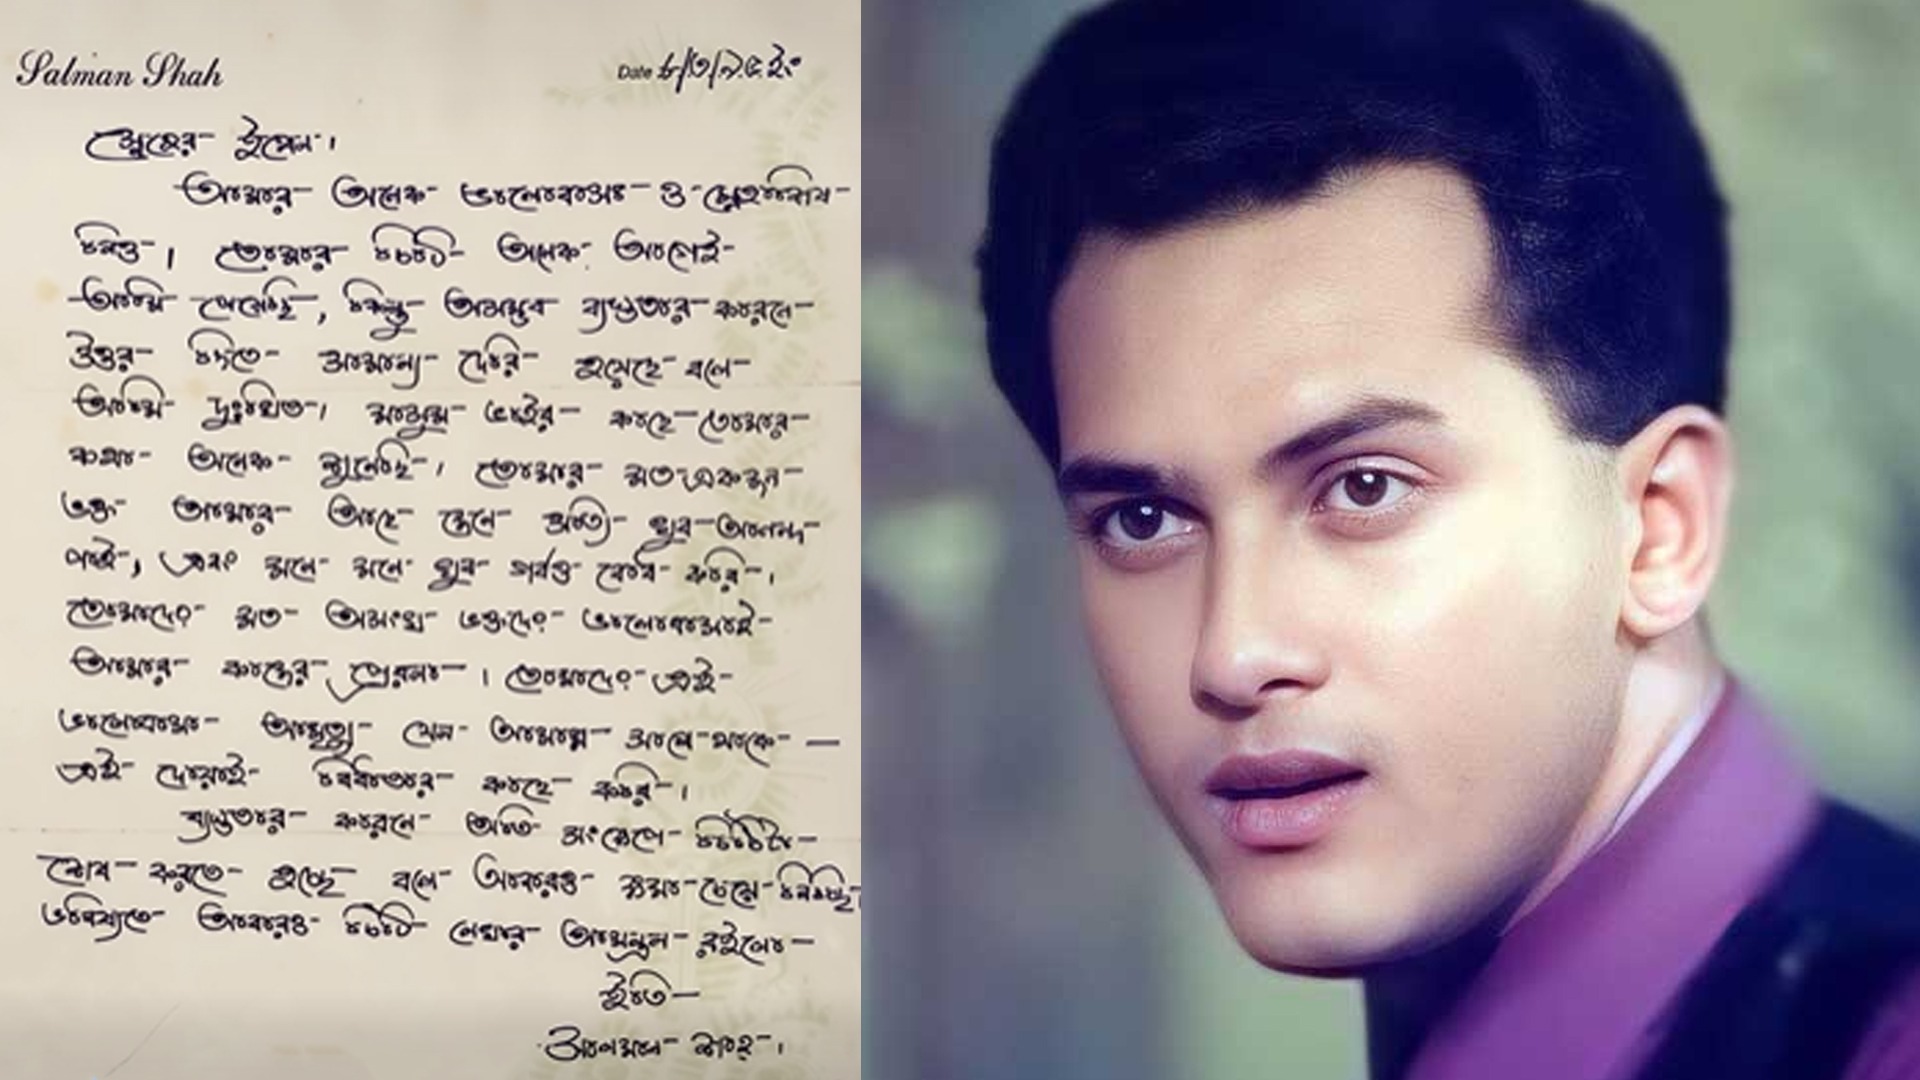 Salman Shah
Date ৮/৩/৯৫ ইং
স্নেহের ইপেল।
আমার অনেক ভালোবাসা ও স্নেহাশীষ
নিও। তোমার চিঠি অনেক আগেই
আমি পেয়েছি, কিন্তু অসম্ভব ব্যস্ততার কারনে
উত্তর দিতে সামান্য দেরি হয়েছে বলে
আমি দুঃখিত। মাসুম ভাইর কাছে তোমার
কথা অনেক শুনেছি। তোমার মত একজন
ভক্ত আমার আছে জেনে সত্যি খুব আনন্দ
পাই, এবং মনে মনে খুব গর্বও বোধ করি।
তোমাদের মত অসংখ্য ভক্তদের ভালোবাসাই
আমার কাজের প্রেরনা। তোমাদের এই
ভালোবাসা আমৃত্যু যেন আমার সাথে থাকে —
এই দোয়াই বিধাতার কাছে করি।
ব্যস্ততার কারনে অতি সংক্ষেপে চিঠিটি
শেষ করতে হচ্ছে বলে আবারও ক্ষমা চেয়ে নিচ্ছি
ভবিষ্যতে আবারও চিঠি লেখার আমন্ত্রন রইলো
ইতি
সালমান শাহ।